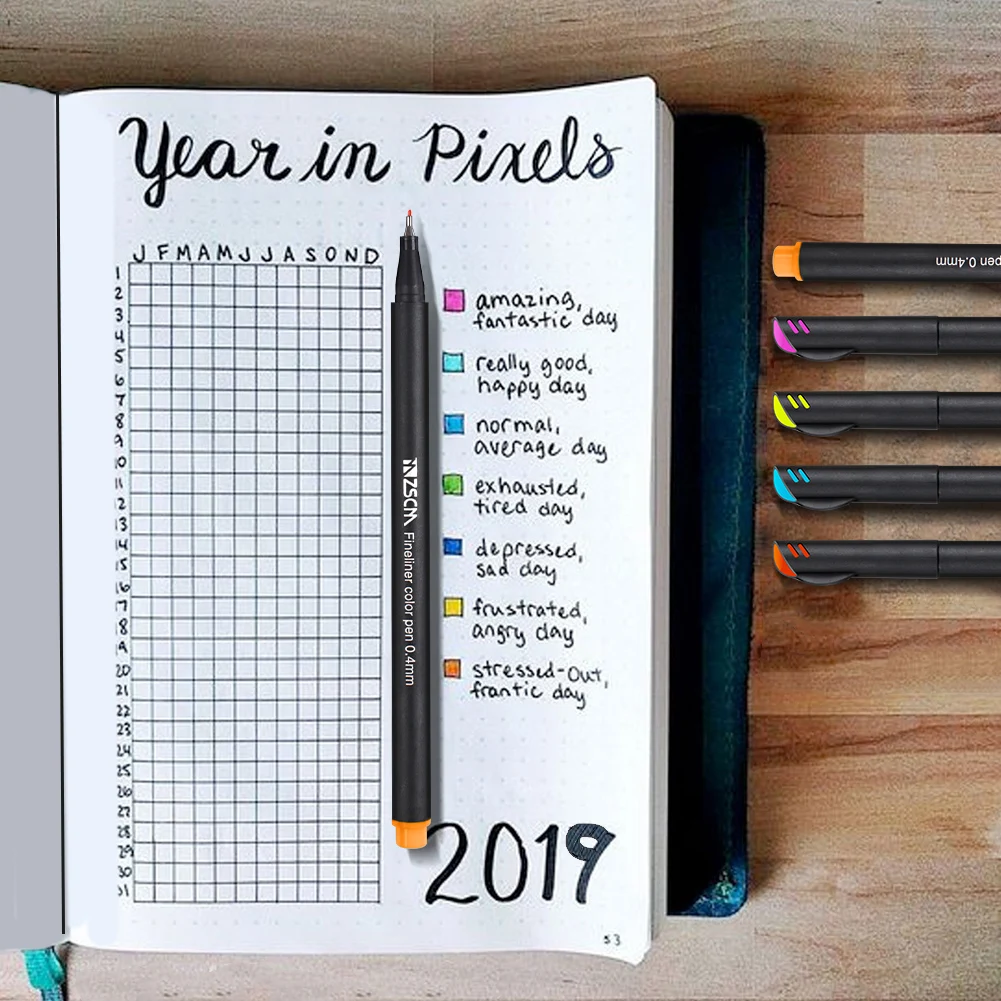 Year in Pixels
J F M A M J J A S O N D
1
2
3
4
5
6
7
8
9
10
11
12
13
14
15
16
17
18
19
20
21
22
23
24
25
26
27
28
29
30
31
amazing,
fantastic day
really good,
happy day
normal,
average day
exhausted,
tired day
depressed,
sad day
frustrated,
angry day
stressed-out,
frantic day
2019
53
ZSCM Fineliner color pen 0.4mm
pen 0.4mm